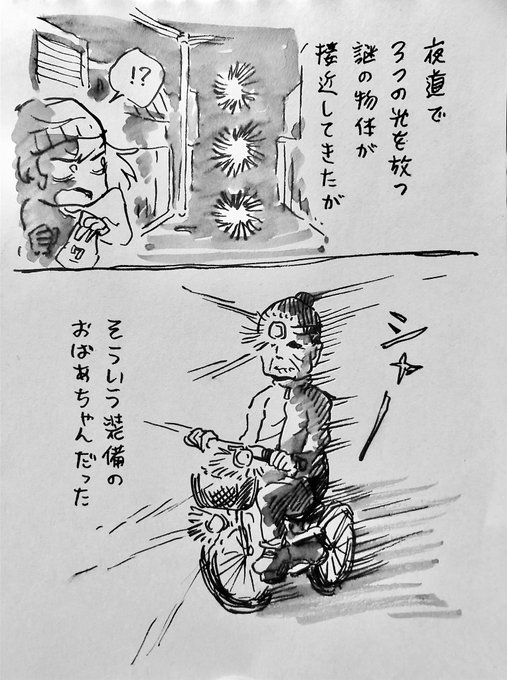 夜道で
3つの光を放つ
謎の物体が
接近してきたが
!?
シャー
そういう装備の
おばあちゃんだった